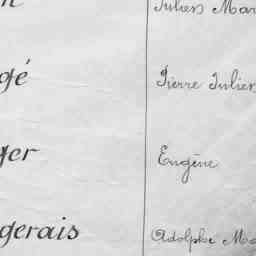 Julien Mar
gé Pierre Julien
ger Eugène
gerais Adolphe Ma